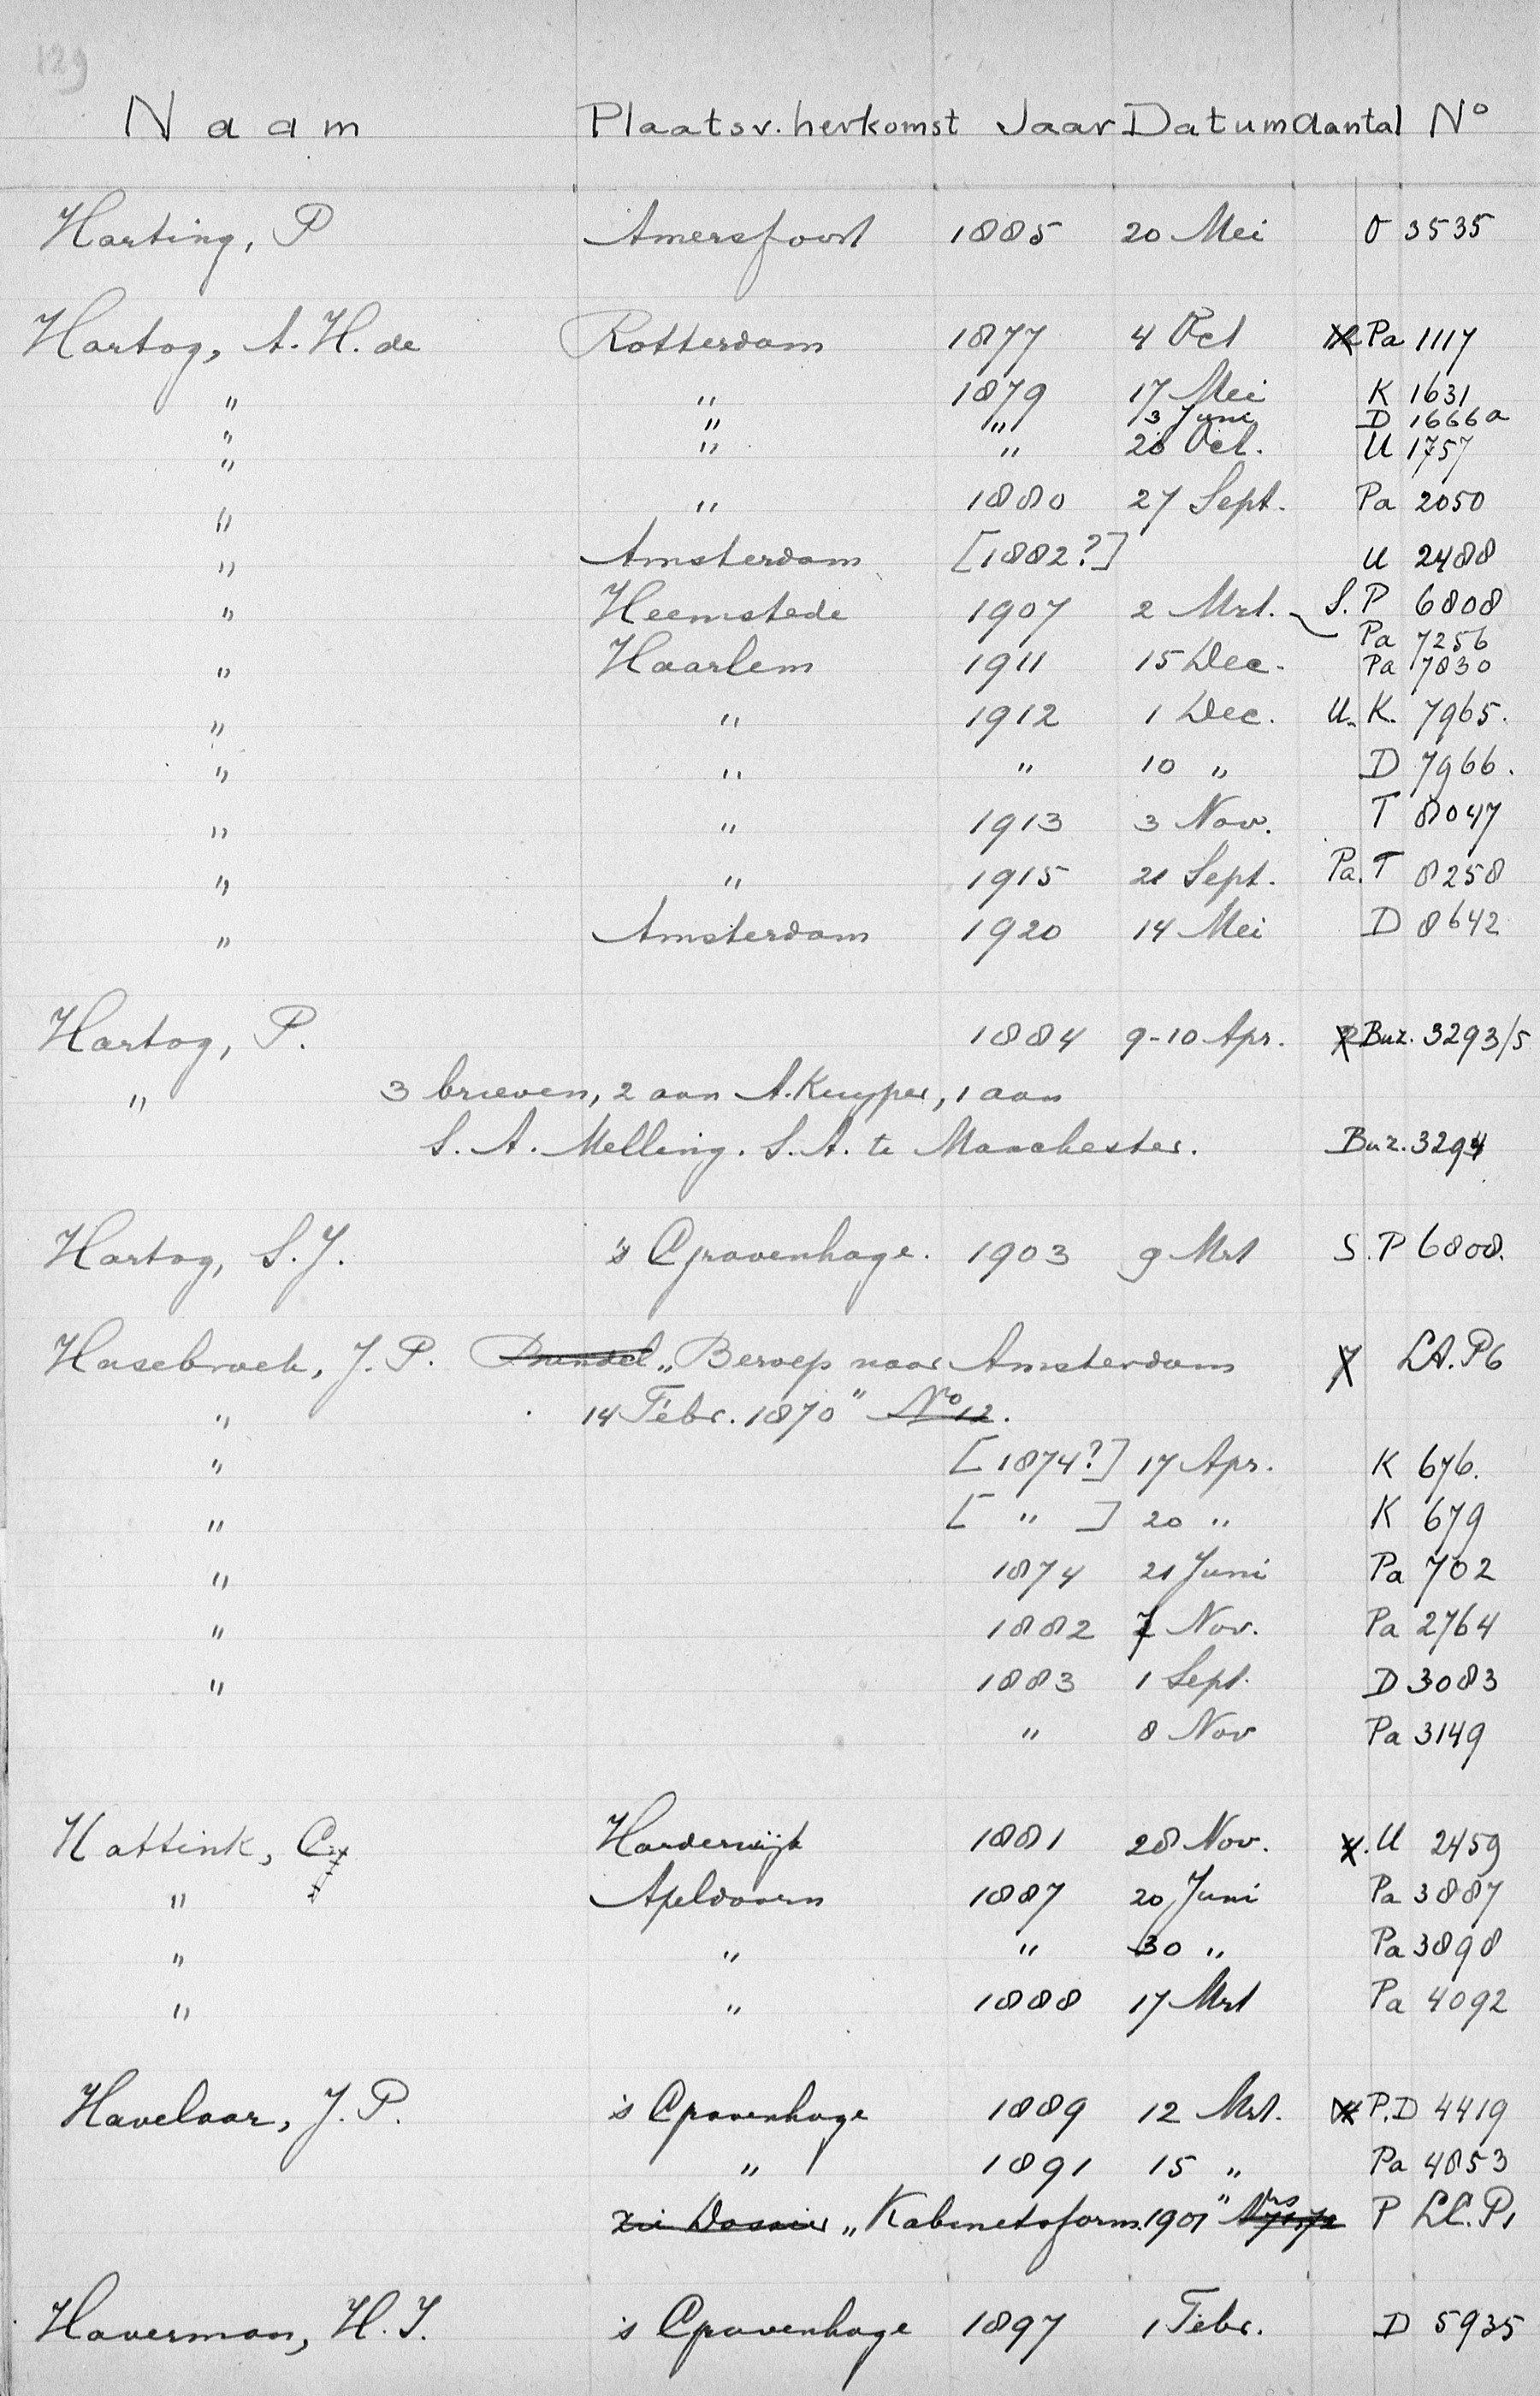 129
Naam Plaats v. herkomst Jaar Datum Aantal No
Harting, P Amersfoort 1885 20 Mei O 3535
Hartog, A. H. de Rotterdam 1877 4 Oct Pa 1117
" " 1879 17 Mei K 1631
" " " 3 Juni D 1666a
" " " 28 Oct. U 1757
" " 1880 27 Sept. Pa 2050
" Amsterdam [1882?] U 2488
" Heemstede 1907 2 Mrt. S. P 6808
Pa 7256
" Haarlem 1911 15 Dec. Pa 7830
" " 1912 1 Dec. U. K. 7965.
" " " 10 " D 7966.
" " 1913 3 Nov. T 8047
" " 1915 21 Sept. Pa. T 8258
" Amsterdam 1920 14 Mei D 8642
Hartog, P. 1884 9-10 Apr. Buz. 3293/5
" 3 brieven, 2 aan A. Kuyper, 1 aan
S. A. Melling. S. A. te Manchester. Buz. 3294
Hartog, S. J. 's Gravenhage. 1903 9 Mrt S. P 6808.
Hasebroek, J. P. Bundel „Beroep naar Amsterdam LA. P6
" 14 Febr. 1870" No 12.
" [1874?] 17 Apr. K 676.
" [ " ] 20 " K 679
" 1874 21 Juni Pa 702
" 1882 7 Nov. Pa 2764
" 1883 1 Sept. D 3083
" 8 Nov Pa 3149
Hattink, C Harderwijk 1881 28 Nov. U 2459
" Apeldoorn 1887 20 Juni Pa 3887
" " " 30 " Pa 3898
" " 1888 17 Mrt Pa 4092
Havelaar, J. P. 's Gravenhage 1889 12 Mrt. P. D 4419
" 1891 15 " Pa 4853
zie Dossier „Kabinetsform. 1901" Nrs P LC. P1
Haverman, H. J. 's Gravenhage 1897 1 Febr. D 5935